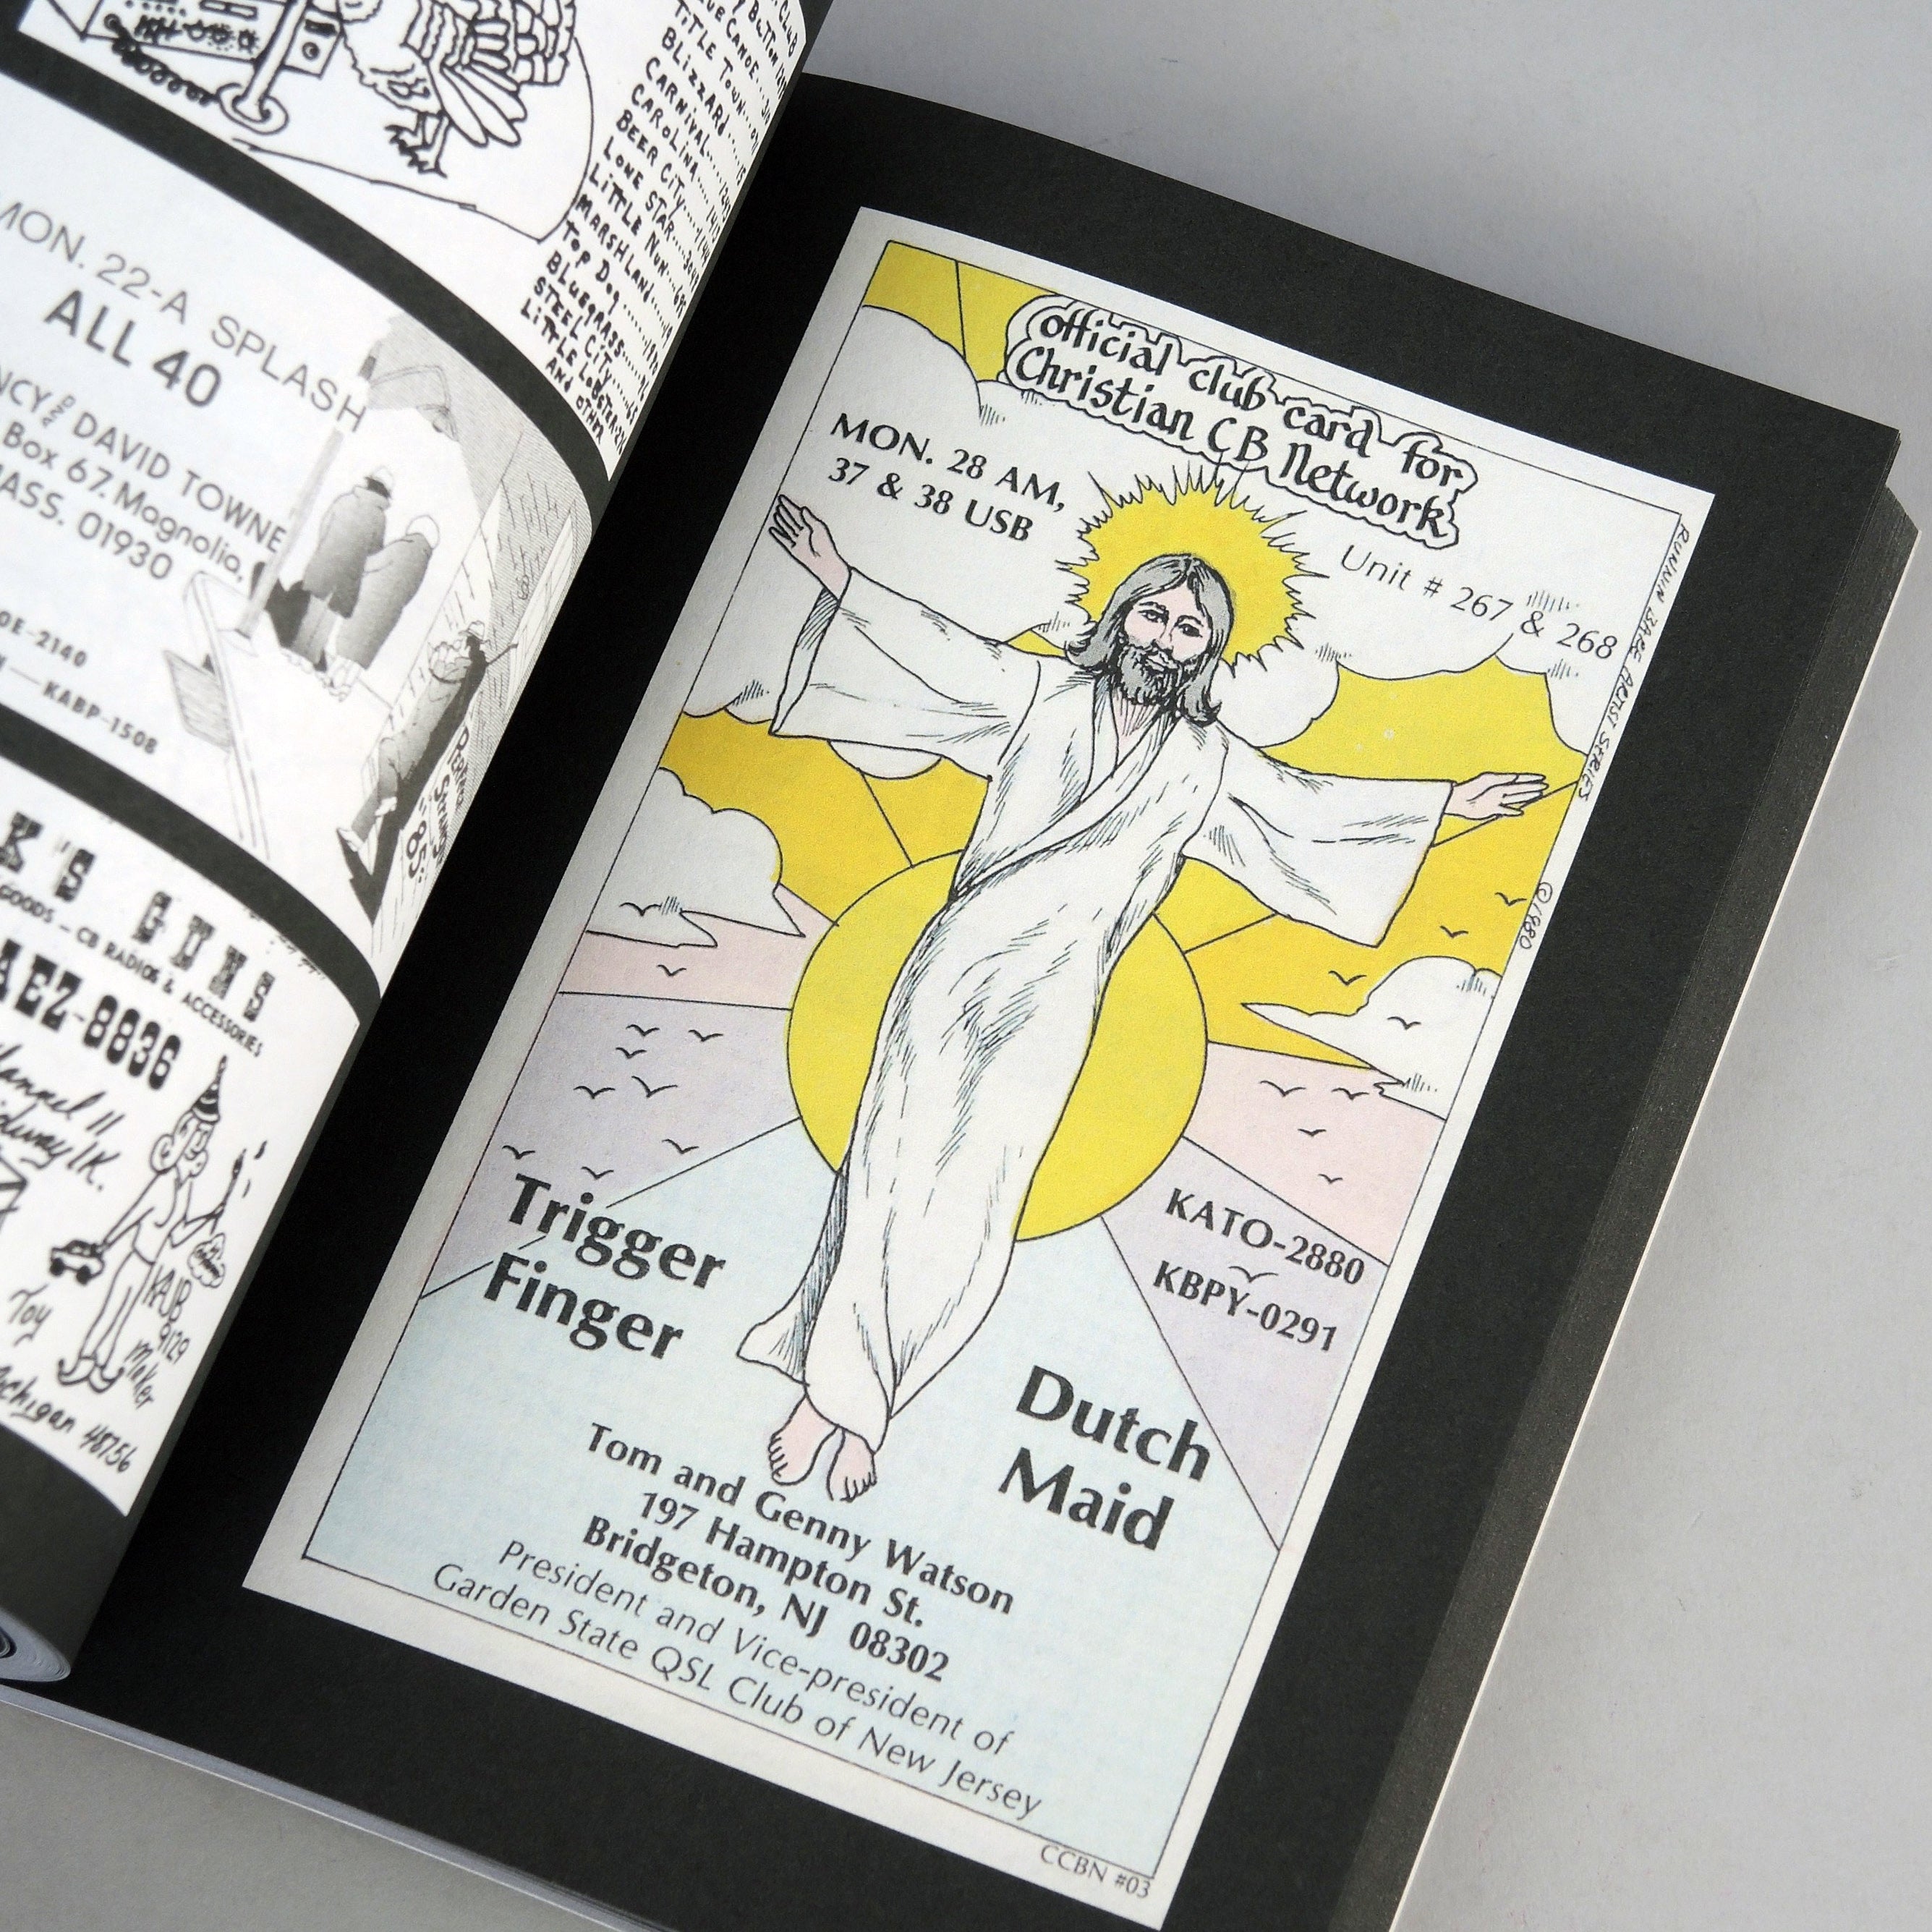 CLUB
BUTTON
CANOE
TITLE TOWN
BLIZZARD
CARNIVAL
CAROLINA
BEER CITY
LONE STAR
LITTLE NUN
MARSHLAND
TOP DOG
BLUEGRASS
STEEL CITY
LITTLE LOBSTER
AND OTHER
MON. 22-A SPLASH
ALL 40
AND DAVID TOWNE
Box 67. Magnolia,
MASS. 01930
OE-2140
KABP-1508
"Perfect
Strangers"
85¢
K'S GUNS
GOODS – CB RADIOS & ACCESSORIES
AEZ-8836
Channel 11
Toy
KAJB
9129
maker
Michigan 48756
official club card for
Christian CB Network
MON. 28 AM,
37 & 38 USB
Unit # 267 & 268
RUNNIN BARE ARTIST SERIES
©1980
Trigger
Finger
KATO-2880
KBPY-0291
Dutch
Maid
Tom and Genny Watson
197 Hampton St.
Bridgeton, NJ 08302
President and Vice-president of
Garden State QSL Club of New Jersey
CCBN #03